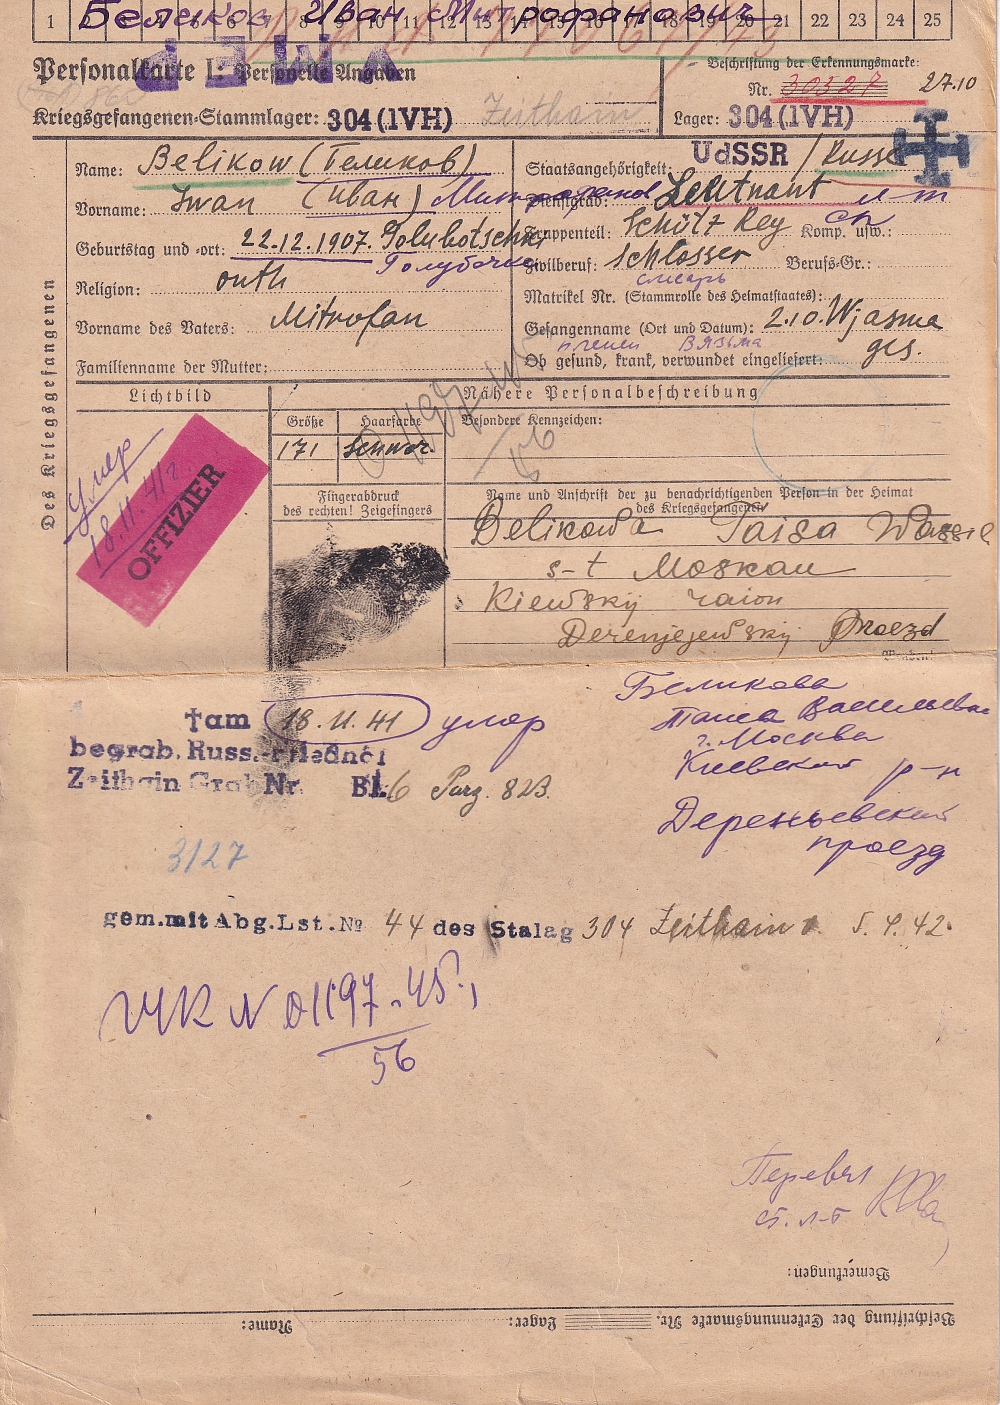 Беликов Иван Митрофанович
1 6 7 8 9 10 11 12 13 14 15 16 17 18 19 20 21 22 23 24 25
УМЕР
Personalkarte I: Personelle Angaben
Beschriftung der Erkennungsmarke:
Nr. 30327 27.10
Kriegsgefangenen-Stammlager: 304 (IVH) Zeithain
Lager: 304 (IVH)
Des Kriegsgefangenen
Name: Belikow (Беликов)
Staatsangehörigkeit: UdSSR / Russe
Vorname: Iwan (Иван) Митрофанов
Dienstgrad: Leutnant л-т
Truppenteil: Schütz Reg Komp. usw.: сп
Geburtstag und -ort: 22.12.1907. Golubotschki
Голубочки
Zivilberuf: Schlosser Berufs-Gr.:
слесарь
Religion: orth
Matrikel Nr. (Stammrolle des Heimatstaates):
Vorname des Vaters: Mitrofan
Gefangenname (Ort und Datum): 2.10. Wjasma
пленен Вязьма
Familienname der Mutter:
Ob gesund, krank, verwundet eingeliefert: ges.
Lichtbild
Nähere Personalbeschreibung
Größe Haarfarbe Besondere Kennzeichen:
171 Schwar.
умер
18.11.41г.
OFFIZIER
Fingerabdruck
des rechten! Zeigefingers
Name und Anschrift der zu benachrichtigenden Person in der Heimat
des Kriegsgefangenen
Belikowa Taisa Wassil
s-t Moskau
Kiewskij raion
Derenjejewskij Proezd
Беликова
Таиса Васильевна
г. Москва
Киевский р-н
Дереньевский
проезд
†am 18.11.41 умер
begrab. Russ.-Friedhof
Zeithain Grab Nr. Bl. 6 Parz. 82B.
3127
gem. mit Abg. Lst. № 44 des Stalag 304 Zeithain 5.4.42.
N 01197-45г.,
56
Перевел
ст. л-т
Bemerkungen:
Beschriftung der Erkennungsmarke Nr. Lager: Name: